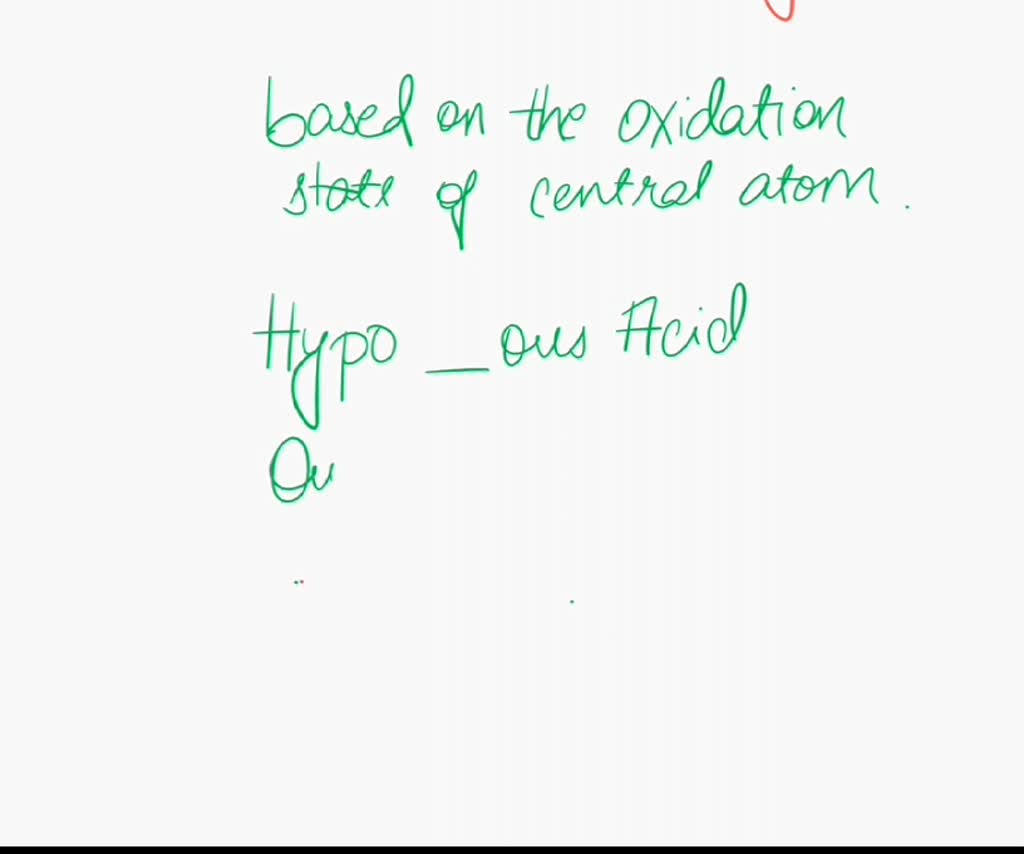 based on the oxidation
state of central atom.
Hypo _ ous Acid
Ou